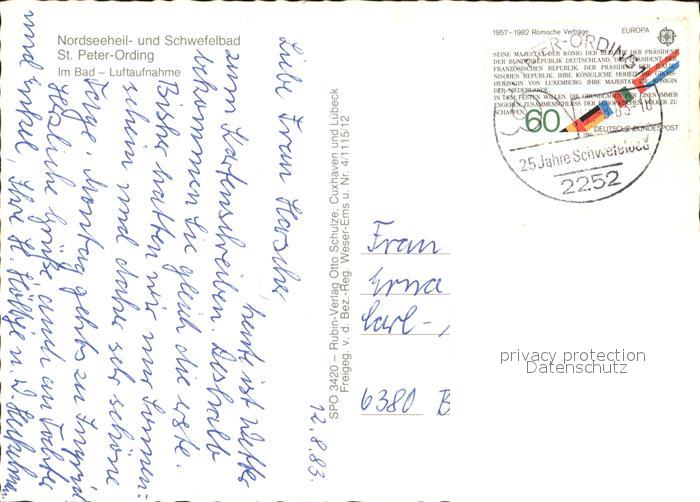 Nordseeheil- und Schwefelbad
St. Peter-Ording
Im Bad – Luftaufnahme
12.8.83.
Liebe Frau
heute ist Wetter
zum Kartenschreiben. Deshalb
bekommen Sie gleich die erste.
Bisher hatten wir nur Sonnen-
schein und daher sehr schöne
Tage. Montag gehts zu
Herzliche Grüße auch an Tochter
und Enkel, Ihre
SPO 3420 – Rubin-Verlag Otto Schulze, Cuxhaven und Lübeck
Freigeg. v. d. Bez.-Reg. Weser-Ems u. Nr. 4/1115/12
1957–1982 Römische Verträge EUROPA
SEINE MAJESTÄT DER KÖNIG DER BELGIER, DER PRÄSIDENT
DER BUNDESREPUBLIK DEUTSCHLAND, DER PRÄSIDENT DER
FRANZÖSISCHEN REPUBLIK, DER PRÄSIDENT DER ITALIE-
NISCHEN REPUBLIK, IHRE KÖNIGLICHE HOHEIT DIE GROSS-
HERZOGIN VON LUXEMBURG, IHRE MAJESTÄT DIE KÖNIGIN
DER NIEDERLANDE
IN DEM FESTEN WILLEN, DIE GRUNDLAGEN FÜR EINEN IMMER
ENGEREN ZUSAMMENSCHLUSS DER EUROPÄISCHEN VÖLKER ZU
SCHAFFEN
60
DEUTSCHE BUNDESPOST
PETER-ORDING
83-18
25 Jahre Schwefelbad
2252
Frau
Erna
Carl-
6380 B
privacy protection
Datenschutz